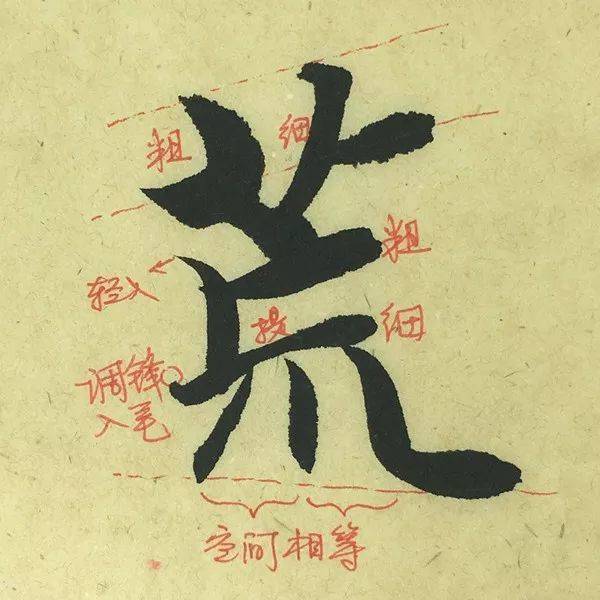 荒
粗 细
粗
轻入
提 细
调锋
入笔
空间相等